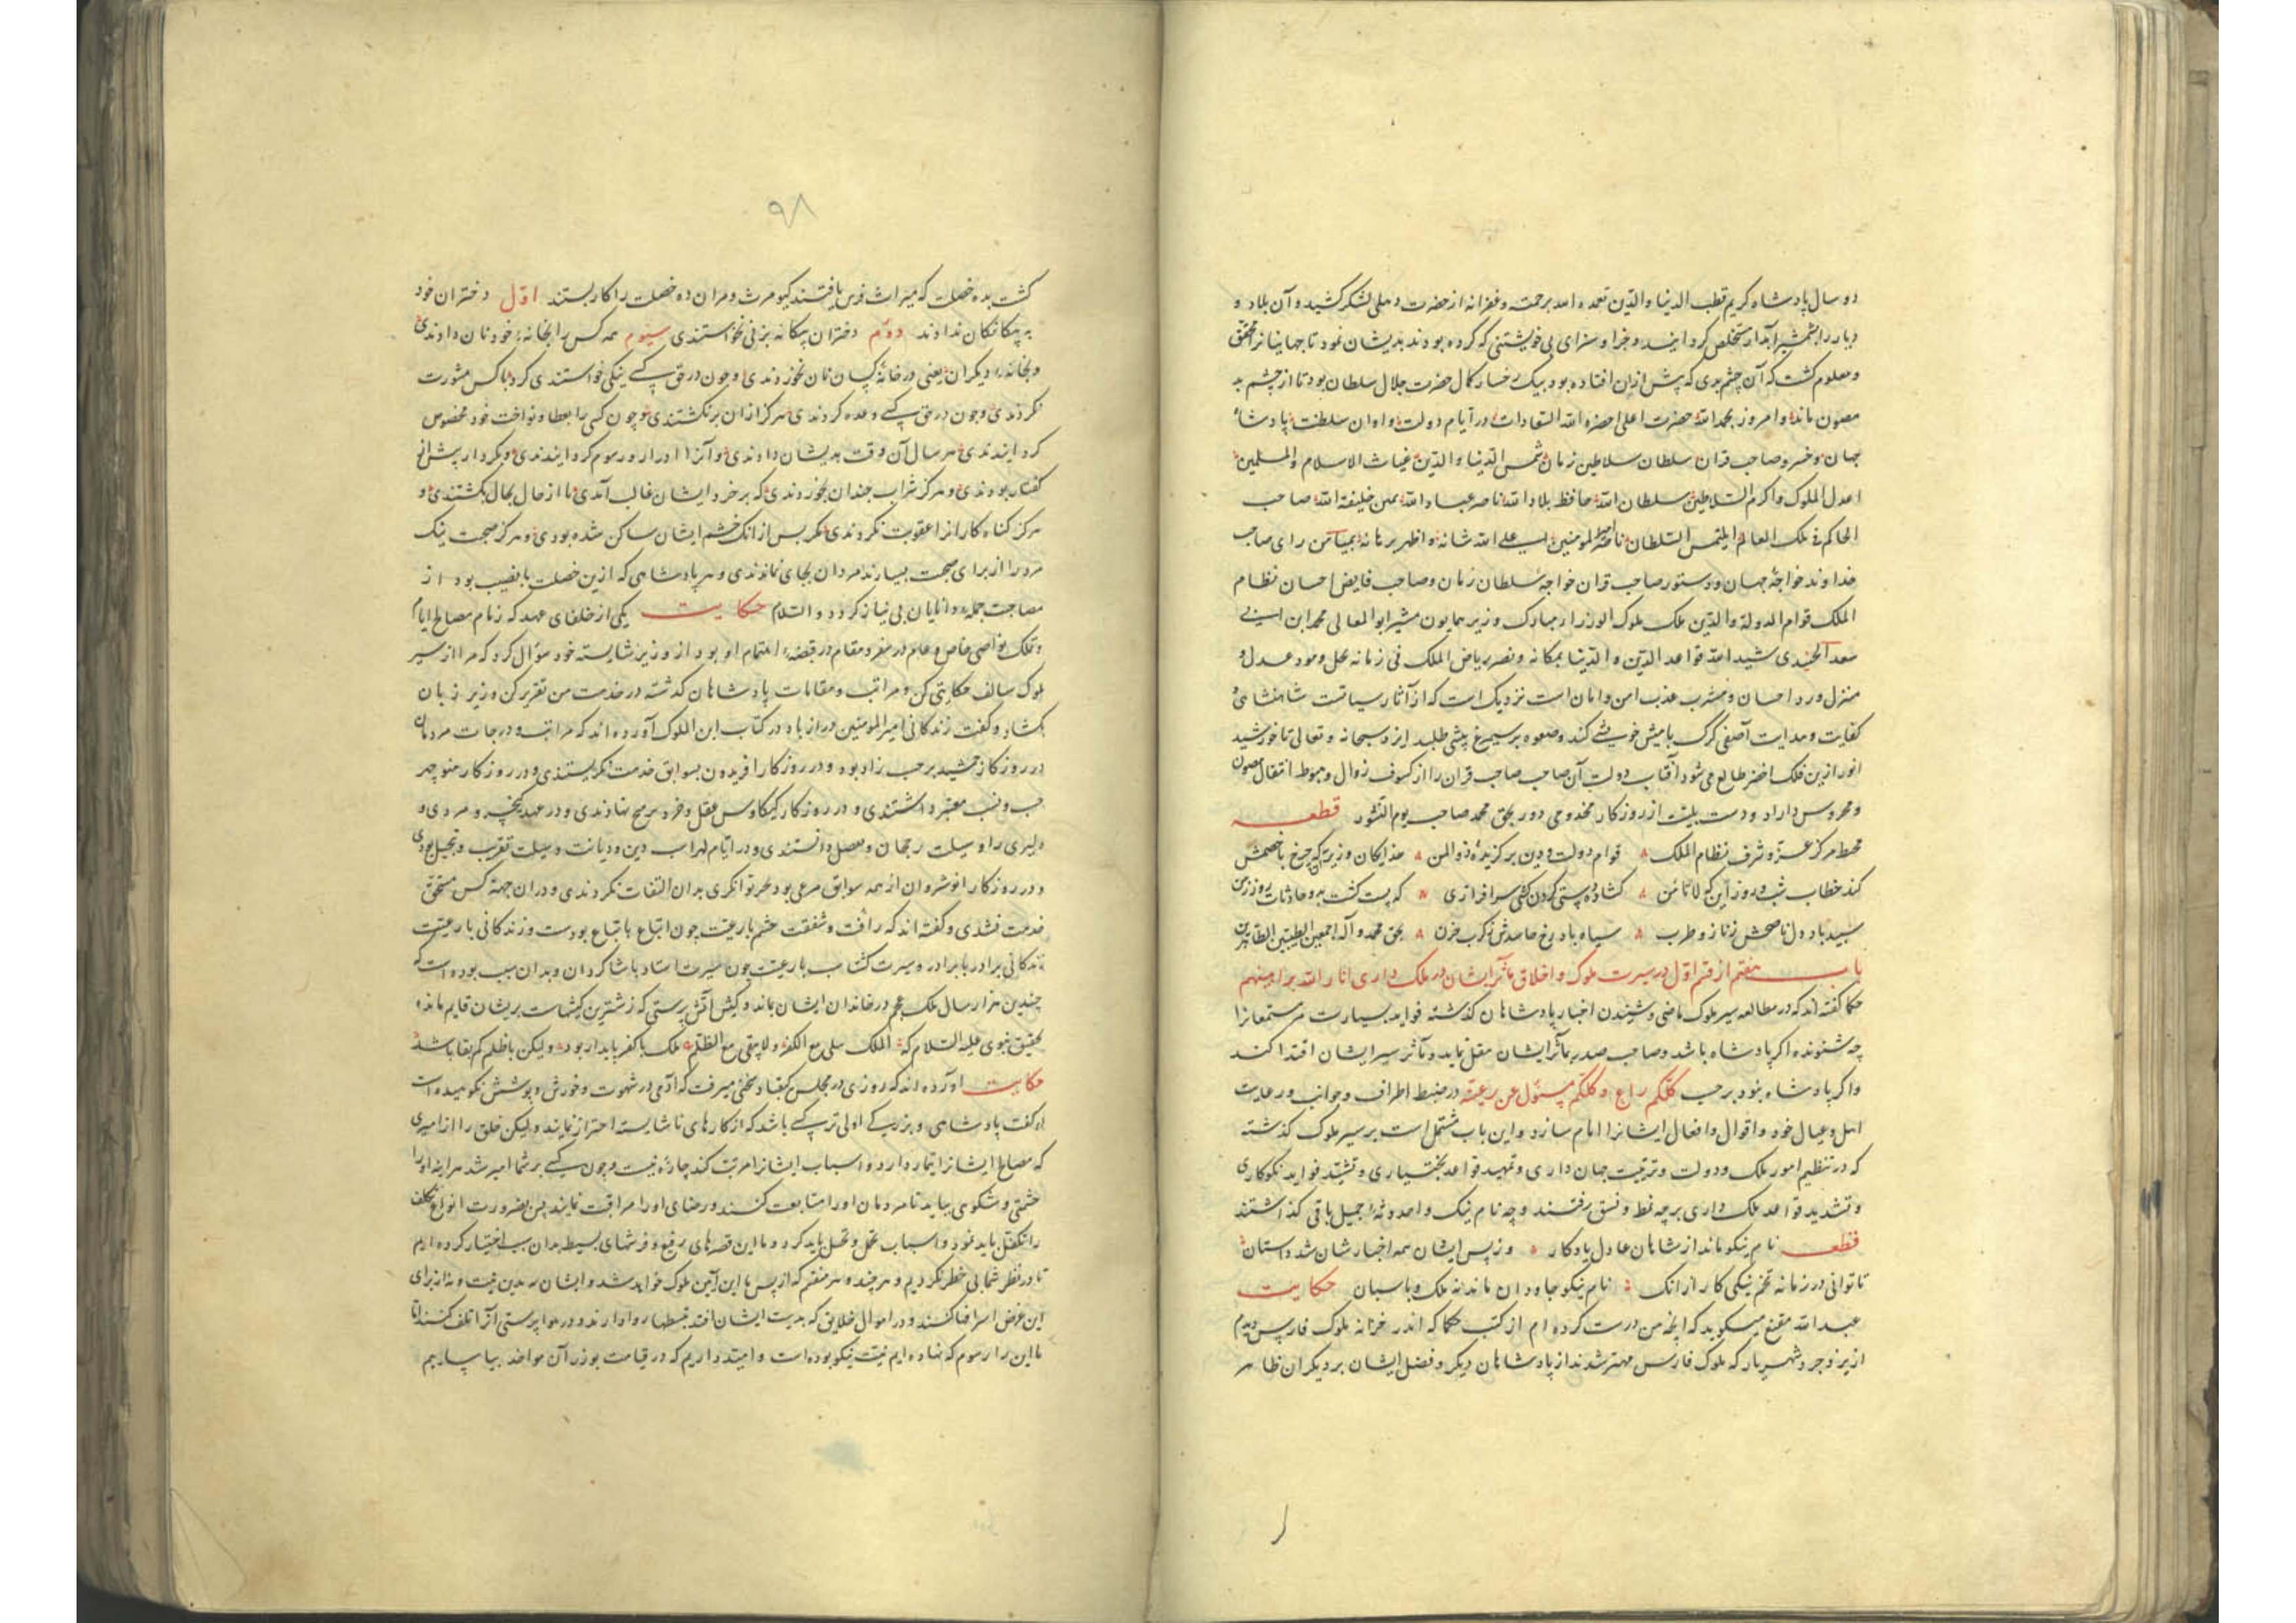 دو سال پادشاه کریم قطب الدنیا والدین تغمده الله برحمته و غفرانه از حضرت دهلی لشکر کشید و آن بلاد و
دیار را بشمشیر آبدار مستخلص کردانید و جزا و سزای بی خویشتنی که کرده بودند بدیشان نمود تا جهانیانرا محقق
و معلوم کشت که آن چشم بدی که پیش ازان افتاده بود بیک رخسار کمال حضرت جلال سلطان بود تا از چشم بد
مصون ماند و امروز بحمدالله حضرت اعلی الله السعادات در ایام دولت و اوان سلطنت پادشاه
جهان و خسرو صاحب قران سلطان سلاطین زمان شمس الدنیا والدین غیاث الاسلام والمسلمین
اعدل الملوک و اکرم السلاطین سلطان الله حافظ بلاد الله ناصر عباد الله خلیفة الله صاحب
الحاکم فی ملک العالم ایلتمس السلطان ناصر امیر المومنین اعلی الله شانه و اظهر برهانه رای صاحب
خداوند خواجهٔ جهان و دستور صاحب قران خواجهٔ سلطان زمان و صاحب فایض احسان نظام
الملک قوام الدولة والدین ملک ملوک الوزرا مبارک وزیر همایون مشیر ابو المعالی محمد ابن ابی
سعد الجنیدی شید الله قواعد الدین والدنیا بمکانه و نصر ریاض الملک فی زمانه محل و مورد عدل و
منزل ورد احسان و مشرب عذب امن و امان است نزدیک است که از آثار سیاست شاهنشاهی و
کفایت و هدایت آصفی کرک با میش خویشی کند و صعوه بر سیمرغ پیشی طلبد ایزد سبحانه و تعالی تا خورشید
انور ازین فلک اخضر طالع می شود آفتاب دولت آن صاحب صاحب قران را از کسوف زوال و هبوط انتقال مصون
و محروس داراد و دست بلیت از روزکار مخدومی دور بحق محمد صاحب یوم النشور قطعه
محیط مرکز عز و شرف نظام الملک قوام دولت و دین برکزیدهٔ ذوالمن خدایکان وزیر که چرخ با خصمش
کند خطاب شب و روز این که لا تامن کشاده پستی کردن کشی سرافرازی که پست کشت بدو حادثات روز زمن
سپید باد دل ناصحش ز ناز و طرب سیاه باد رخ حاسدش ز کرب حزن بحق محمد و آله اجمعین الطیبین الطاهرین
باب هفتم از قسم اول در سیرت ملوک و اخلاق و مآثر ایشان در ملک داری انار الله براهینهم
حکما کفته اند که در مطالعه سیر ملوک ماضی و شنیدن اخبار پادشاهان کذشته فواید بسیارست مر مستمعانرا
چه شنونده اکر پادشاه باشد و صاحب صدر بمآثر ایشان مقبل نماید و بآثر سیر ایشان اقتدا کند
و اکر پادشاه نبود بر حسب کلکم راع و کلکم مسئول عن رعیته در ضبط اطراف و جوانب و رعایت
اهل و عیال خود و اقوال و افعال ایشانرا امام سازد و این باب مشتمل است بر سیر ملوک کذشته
که در تنظیم امور ملک و دولت و ترتیب جهان داری و تمهید قواعد بختیاری و تشید فواید نکوکاری
و تشدید قواعد ملک داری بر چه نمط و نسق رفتند و چه نام نیک و احدوثهٔ جمیل باقی کذاشتند
قطعه نام نیکو ماند از شاهان عادل یادکار وز پس ایشان همه اخبار شان شد داستان
تا توانی در زمانه تخم نیکی کار ازانک نام نیکو جاودان ماند نه ملک و پاسبان حکایت
عبدالله مقفع میکوید که آنچه من درست کرده ام از کتب حکما که اندر خزانه ملوک فارس دیدم
از یزدجرد شهریار که ملوک فارس مهتر شدند از پادشاهان دیکر و فضل ایشان بر دیکران ظاهر
۹۸
کشت بده خصلت که میراث فرس یافتند کیومرث و مران ده خصلت را کار بستند اول دختران خود
به بیکانکان ندادند دوم دختران بیکانه بزنی نخواستندی سیوم همه کس را بخانهٔ خود نان دادندی
و بخانهٔ دیکران یعنی در خانهٔ کسان نان نخوردندی و چون در حق کسی نیکی خواستندی کرد با کس مشورت
نکردندی و چون در حق کسی وعده کردندی هرکز ازان برنکشتندی و چون کسی را بعطا و نواخت خود مخصوص
کردانیدندی هر سال آن وقت بدیشان دادندی و آنرا ادرار و رسوم کردانیدندی و بکردار پیش از
کفتار بودندی و هرکز شراب چندان نخوردندی که بر خرد ایشان غالب آمدی تا از حال بحال بکشتندی و
هرکز کناه کارانرا عقوبت نکردندی مکر پس از انک خشم ایشان ساکن شده بودی و هرکز صحبت نیک
مرد را از برای صحبت بسیار بد مردان بجای نماندندی و هر پادشاهی که ازین خصلت با نصیب بود از
مصاحبت جمله دانایان بی نیاز کردد والسلام حکایت یکی از خلفای عهد که زمام مصالح ایام
و تملک نواصی خاص و عام در سفر و مقام در قبضهٔ اهتمام او بود از وزیر شایسته خود سؤال کرد که مرا از سیر
ملوک سالف حکایتی کن و مراتب و مقامات پادشاهان کذشته در خدمت من تقریر کن وزیر زبان
بکشاد و کفت زندکانی امیر المومنین دراز باد در کتاب ابن الملوک آورده اند که مراتب و درجات مردمان
در روزکار جمشید بر حسب زاد بود و در روزکار افریدون بسوابق خدمت نکریستندی و در روزکار منوچهر
حسب و نسب معتبر داشتندی و در روزکار کیکاوس عقل و خرد مرجح نهادندی و در عهد کیخسرو مردی و
دلیری را وسیلت رجحان و فصل دانستندی و در ایام لهراسب دین و دیانت وسیلت تقریب و تبجیل بودی
و در روزکار انوشروان از همه سوابق مرعی بود مکر توانکری بدان التفات نکردندی و دران جهت کس مستحق
خدمت نشدی و کفته اند که رأفت و شفقت حشم با رعیت چون اتباع باتباع بودست و زندکانی با رعیت
زندکانی برادر با برادر و سیرت کشتاسب با رعیت چون سیرت استاد با شاکردان و بدان سبب بوده است که
چندین هزار سال ملک عجم در خاندان ایشان بماند و کیش آتش پرستی که زشترین کیشهاست بریشان قایم ماند
تحقیق نبوی علیه السلام که الملک یبقی مع الکفر و لا یبقی مع الظلم ملک با کفر پایدار بود ولیکن با ظلم کم بقا باشد
حکایت آورده اند که روزی در مجلس کیقباد سخن میرفت که آدمی در شهوت و خورش و پوشش نکوهیده است
او کفت پادشاهی و بزرکی کسی اولی تر باشد که از کارهای ناشایسته احتراز نمایند ولیکن خلق را از امیری
که مصالح ایشانرا تیمار دارد و اسباب ایشانرا مرتب کند چاره نیست و چون کسی بر شما امیر شد هر اینه او را
حشمتی و شکوهی بباید تا مردمان او را متابعت کنند و رضای او را مراقبت نمایند پس بضرورت انواع تکلف
را تکفل باید نمود و اسباب تجمل و تحمل باید کرد و ما این قصرهای رفیع و فرشهای بسیط بدان سبب اختیار کرده ایم
تا در نظر شما بی خطر نکردیم و هرچند و هر متنعم که از پس ما این آیین ملوک خواهد شد و ایشان نه بدین نیت و نه از برای
این غرض اسراف کنند و در اموال خلایق که بدست ایشان افتد تبسطها روا دارند و در هوا پرستی آنرا تلف کنند اما
ما این را رسوم که نهاده ایم نیت نیکو بوده است و امید داریم که در قیامت بوزر آن مواخذ نباشیم